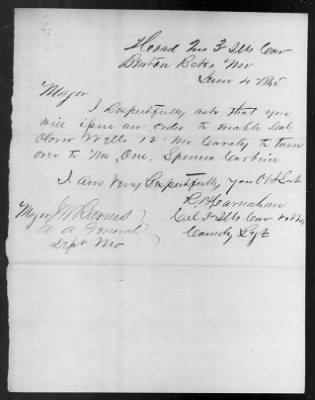 Head Qrs 3 Ills Cav
Benton Bks Mo
June 4 1865
Major
I Respectfully ask that you
will issue an order to enable Lieut
Wells 12 Mo Cavalry to turn
over to me One Spencer Carbine
I Am Very Respectfully Your Obt Svt
R H Carnahan
Col 3 Ills Cav
Comdg Regt
Major J W Barnes
A A General
Dept Mo